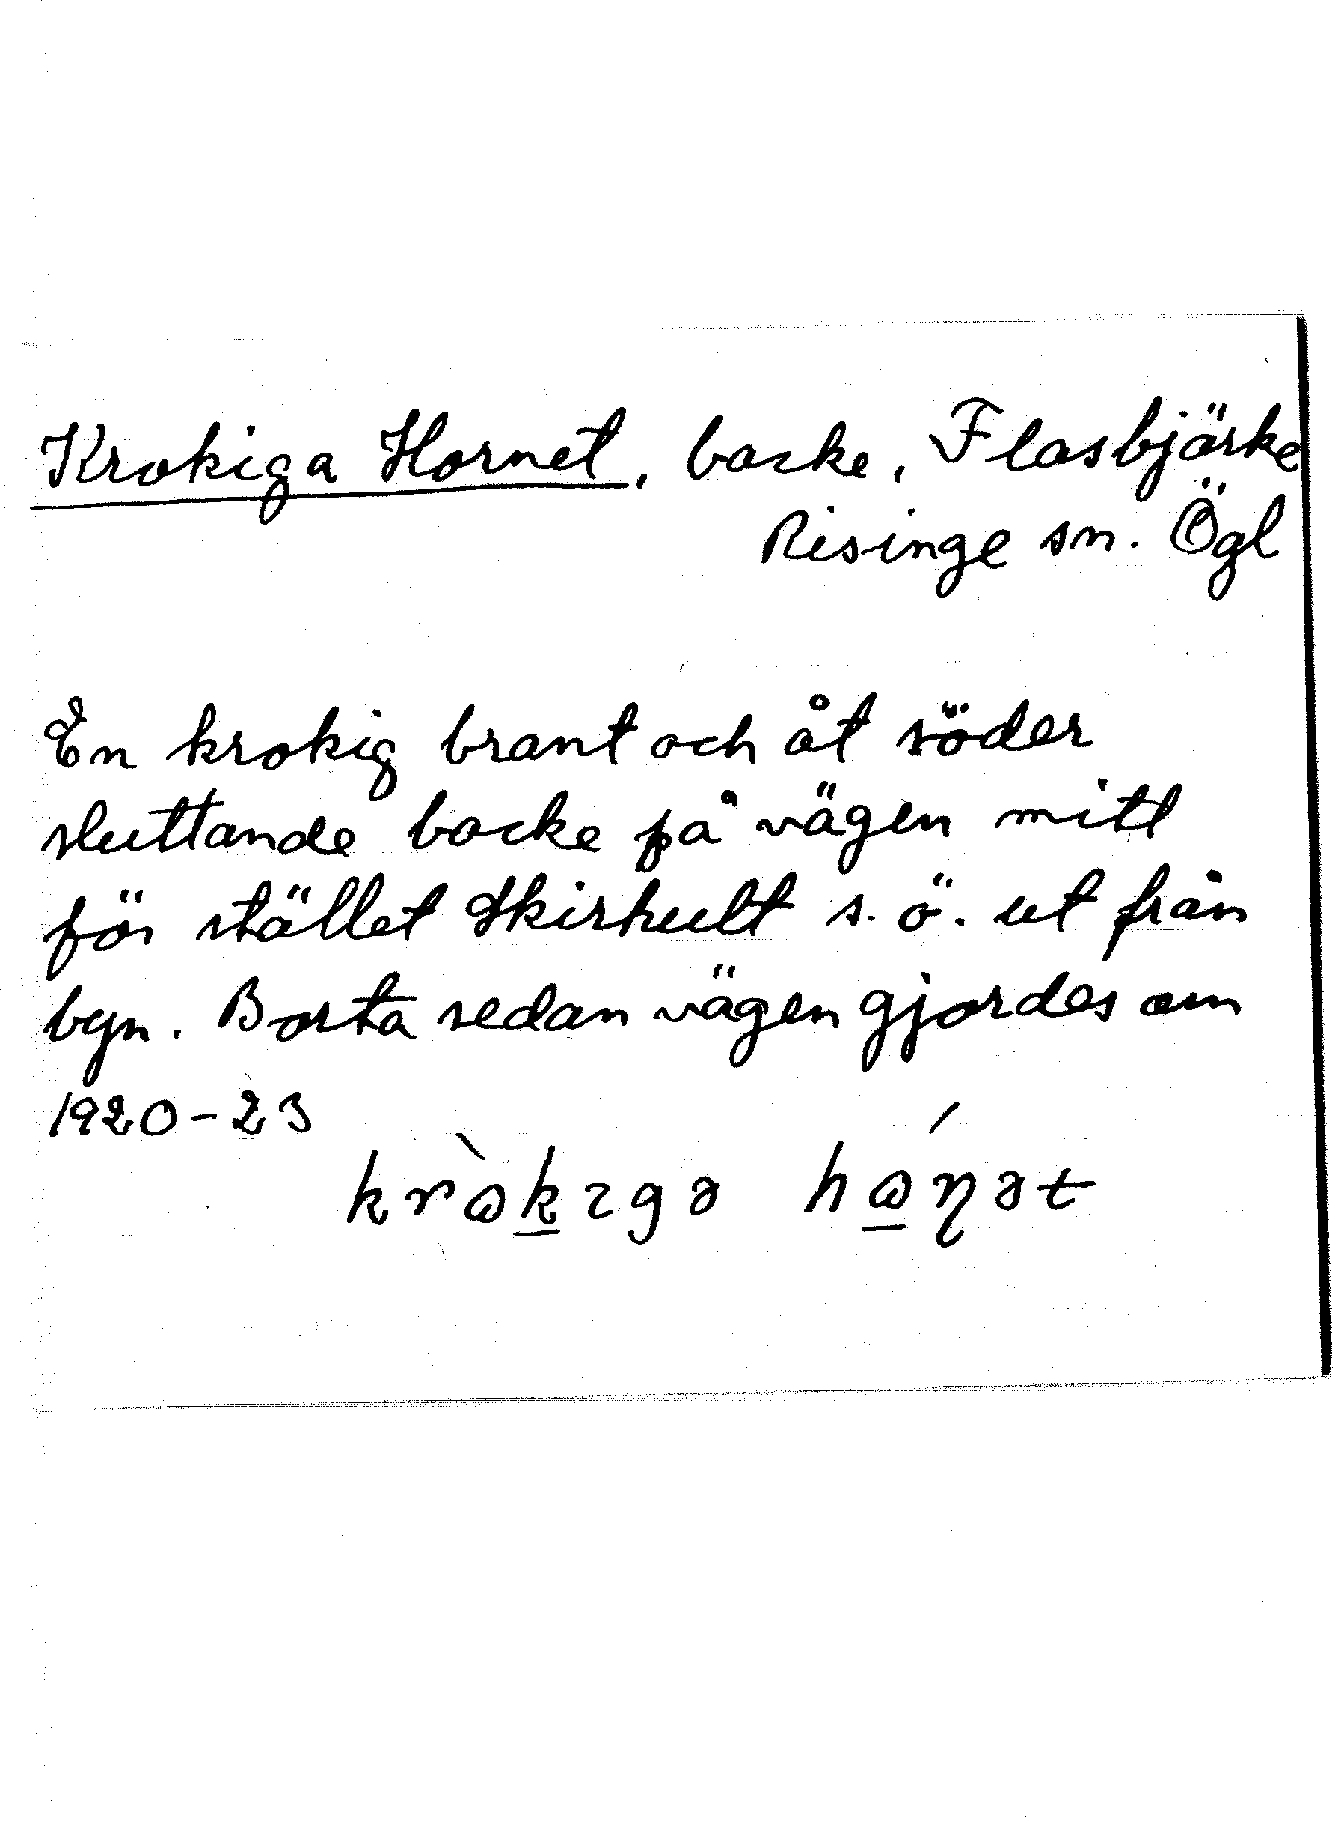 Krokiga Hornet, backe, Flasbjärke
Risinge sn. Ögl
En krokig brant och åt söder
sluttande backe på vägen mitt
för stället Skirhult s.ö. ut från
byn. Borta sedan vägen gjordes om
1920-23